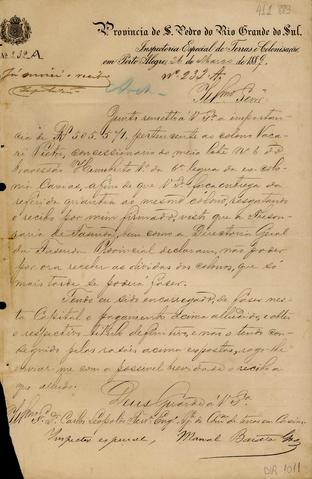 411 983
Provincia de S. Pedro do Rio Grande do Sul.
Inspectoria Especial de Terras e Colonisação
em Porto Alegre, 26 de Março de 1889.
Nº 233 A
Nº 233 A.
Illmo Senr
Junto remetto a V. Sa a importan-
cia de Rs 505.571, pertencente ao colono Vaca-
ri Pietro, concessionario do meio lote Nº 6 do
travessão Humberto 1º da 6ª legua da ex colo-
nia Caxias, a fim de que V. Sa faça entrega da
referida quantia ao mesmo colono, resgatando
o recibo por mim firmado, visto que a Thesou-
raria de Fazenda, bem como a Directoria Geral
da Fazenda Provincial declaram, não poder
por ora receber as dividas dos colonos, que só
mais tarde se poderá fazer.
Tendo eu sido encarregado, de fazer nes-
ta Capital o pagamento acima alludido, e obter
o respectivo titulo definitivo, e não o tendo con-
seguido pelas rasões acima expostas, rogo-lhe
enviar-me com a possivel brevidade o recibo a
que alludo.
Deus Guarde a V. Sa
Illmo Sr Dr Carlos Leopoldo
Inspector especial, Manoel
DIR 1011